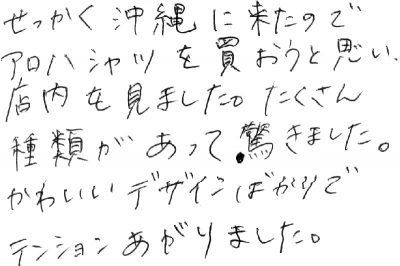 せっかく沖縄に来たので
アロハシャツを買おうと思い、
店内を見ました。たくさん
種類があって驚きました。
かわいいデザインばかりで
テンションあがりました。